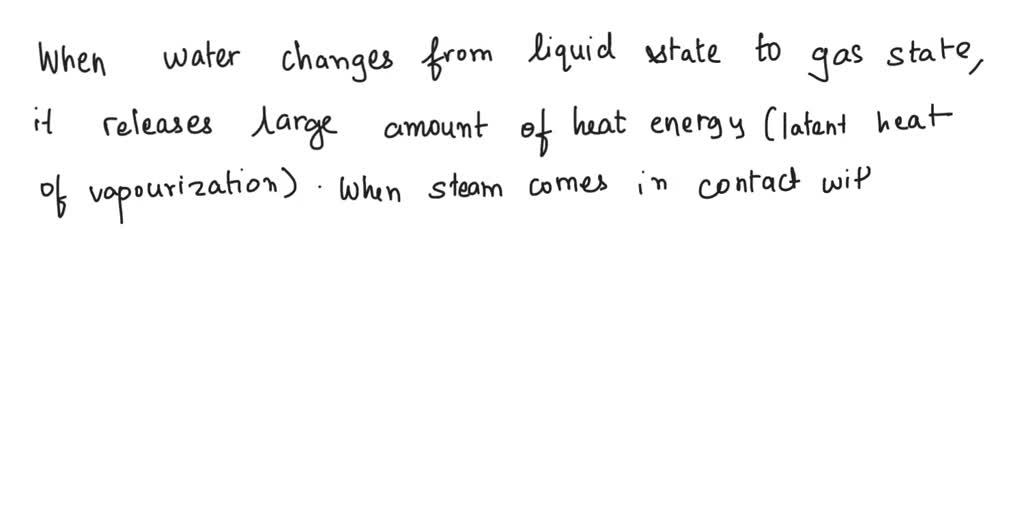 When water changes from liquid state to gas state,
it releases large amount of heat energy (latent heat
of vapourization). When steam comes in contact wit